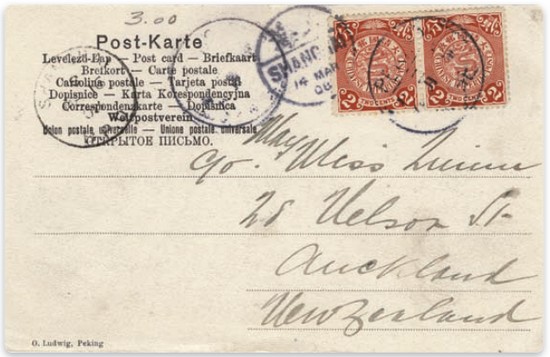 3.00
Post-Karte
Levelező-Lap — Post card — Briefkaart
Brefkort — Carte postale
Cartolina postale — Tarjeta postal
Dopisnice — Karta Korespondencyjna
Correspondenzkarte — Dopisnica
Weltpostverein
Union postale universelle — Unione postale universale
ОТКРЫТОЕ ПИСЬМО.
SHANGHAI
14 MAR
06
2
2
TWO CENTS
2
2
TWO CENTS
May
c/o. Miss
28 Nelson St.
Auckland
New Zealand
O. Ludwig, Peking